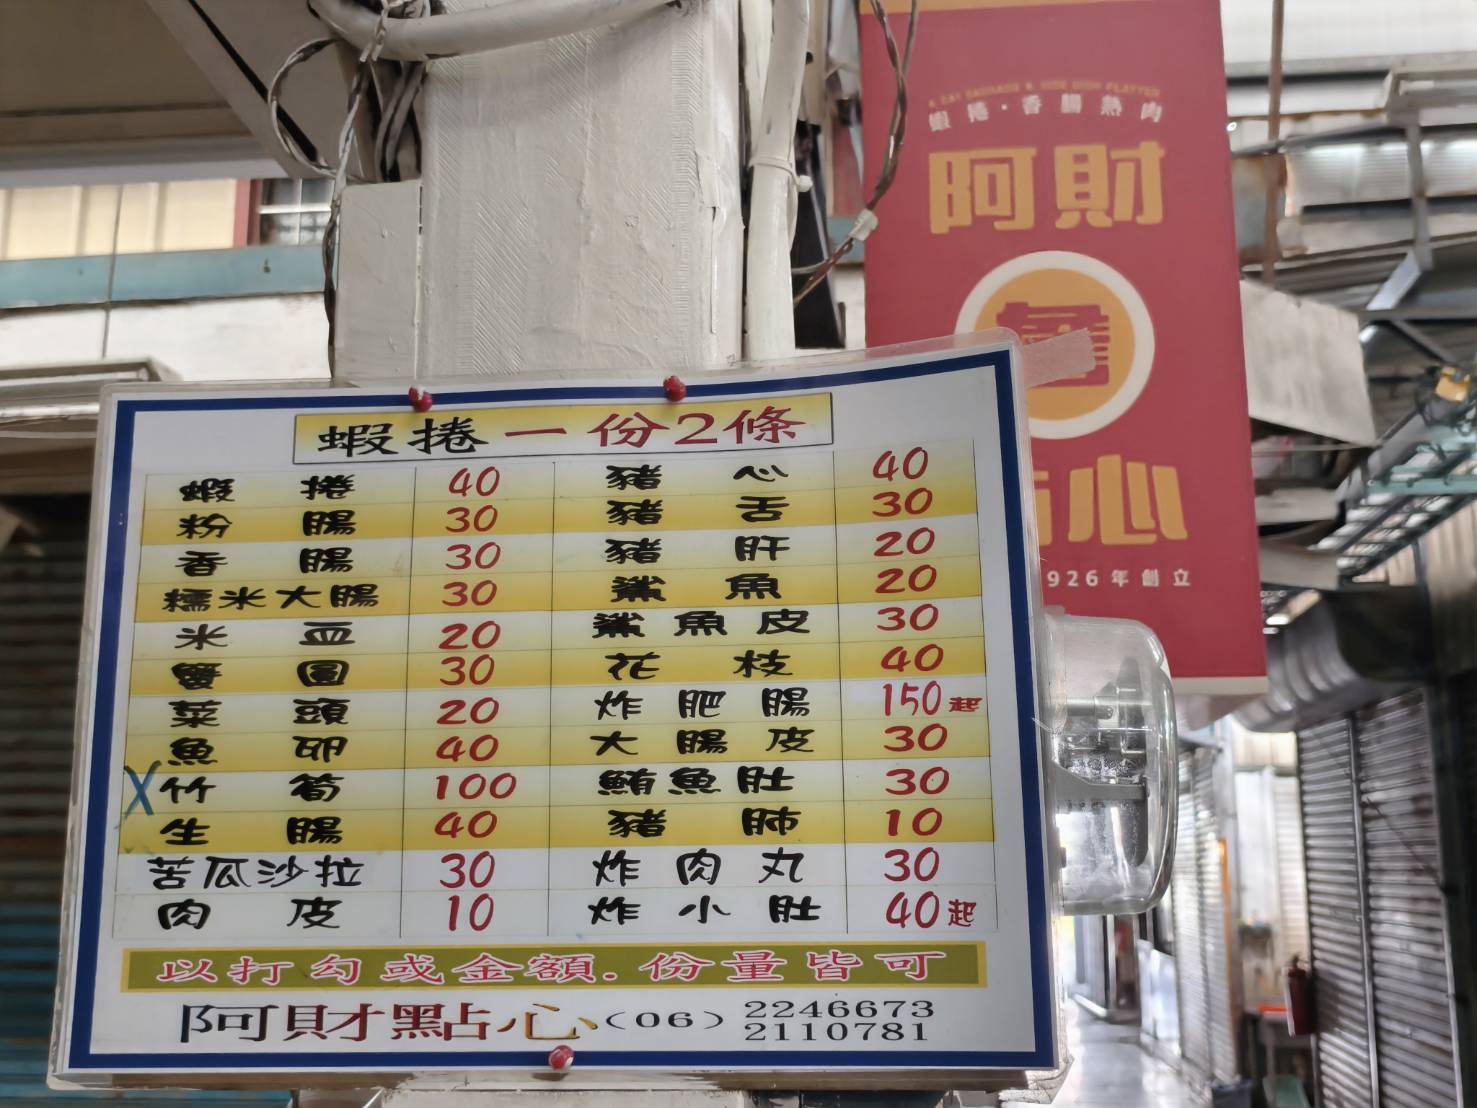 A CAI SAUSAGE & SIDE DISH PLATTER
蝦捲·香腸熟肉
阿財
點心
926年創立
蝦捲一份2條
蝦捲 40 豬心 40
粉腸 30 豬舌 30
香腸 30 豬肝 20
糯米大腸 30 鯊魚 20
米血 20 鯊魚皮 30
蟹圓 30 花枝 40
菜頭 20 炸肥腸 150起
魚卵 40 大腸皮 30
X竹筍 100 鮪魚肚 30
生腸 40 豬肺 10
苦瓜沙拉 30 炸肉丸 30
肉皮 10 炸小肚 40起
以打勾或金額.份量皆可
阿財點心(06) 2246673
2110781